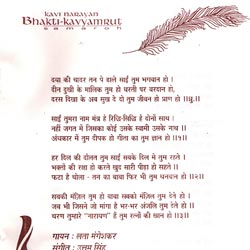 KAVI NARAYAN
BHAKTI-KAVYAMRUT
SAMAROH
दया की चादर तन पे डाले साईं तुम भगवान हो ।
दीन दुखी के मालिक तुम हो धरती पर वरदान हो,
दरस दिखा के अब सुख दे दो तुम जीवन हो प्राण हो ॥धृ.॥
साईं तुमरा नाम मंत्र है रिध्दि-सिध्दि है दोनों साथ ।
नहीं जगत में जिसका कोई उसके स्वामी उसके नाथ ॥
अंधकार में तुम दीपक हो गीता का तुम ज्ञान हो ॥१॥
हर दिल की दौलत तुम साईं सबके दिल में तुम रहते ।
भक्तों की रक्षा हो करते खुद सारी पीड़ा हो सहते ॥
फटा है चोला - तन का बाबा फिर भी तुम धनवान हो ॥२॥
सबकी मंज़िल तुम हो बाबा सबको मंज़िल तुम देते हो ।
जब भी जिसने जो मांगा है भर-भर अंजलि तुम देते हो ॥
चरण तुम्हारे "नारायण" हैं तुम रत्नों की खान हो ॥३॥
गायन : लता मंगेशकर
संगीत : उत्तम सिंह